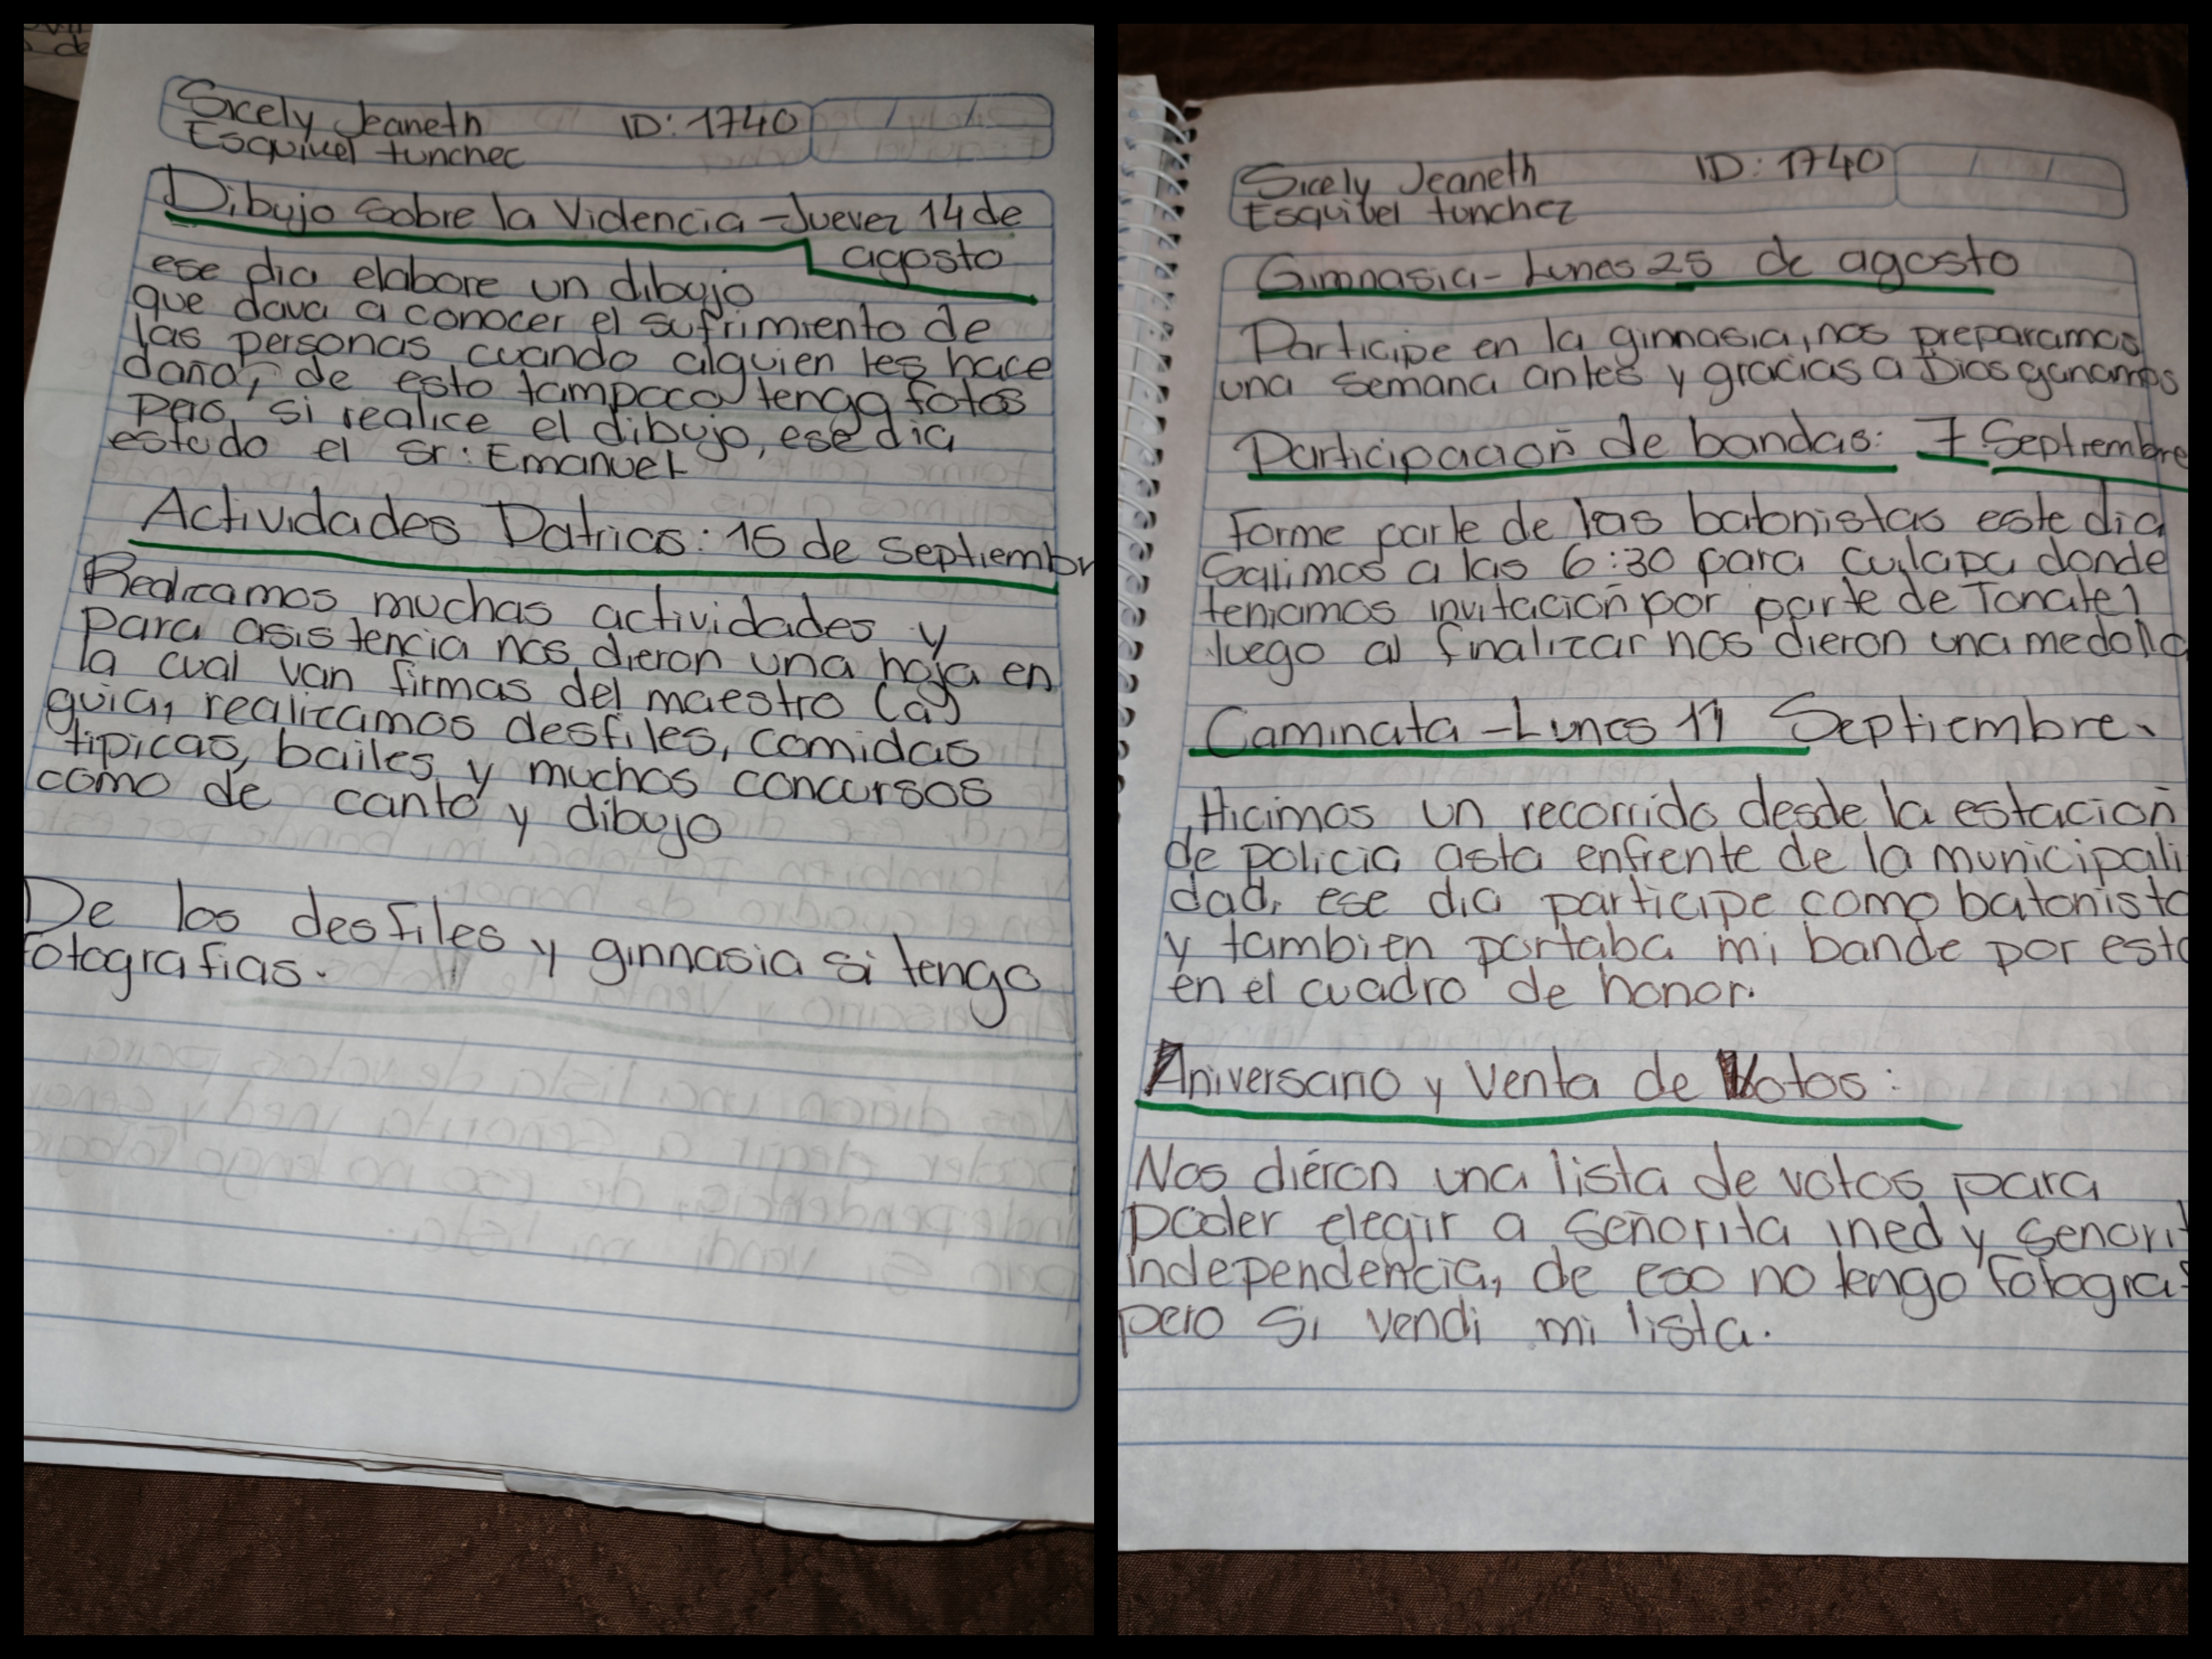 Sicely Jeaneth ID: 1740
Esquivel tunchec
Dibujo sobre la Videncia - Juevez 14 de
agosto
ese dia elabore un dibujo
que dava a conocer el sufrimiento de
las personas cuando alguien les hace
daño, de esto tampoco tengo fotos
pero si realice el dibujo, ese dia
estudo el Sr: Emanuel
Actividades Patrias: 15 de septiembr
Realizamos muchas actividades y
para asistencia nos dieron una hoja en
la cual van firmas del maestro (a)
guia, realizamos desfiles, comidas
tipicas, bailes y muchos concursos
como de canto y dibujo
De los desfiles y ginnasia si tengo
fotografias.
Sicely Jeaneth ID: 1740
Esquibel tunchez
Gimnasia - Lunes 25 de agosto
Participe en la ginnasia, nos preparamos
una semana antes y gracias a Dios ganamos
Participacioñ de bandas: 7 Septiembre
Forme parte de las batonistas este dia
Salimos a las 6:30 para cuilapa donde
teniamos invitacioñ por parte de Tonatel
luego al finalizar nos dieron una medalla
Caminata - Lunes 11 Septiembre.
Hicimos un recorrido desde la estacioñ
de policia asta enfrente de la municipali
dad, ese dia participe como batonista
y tambien portaba mi bande por esta
en el cuadro de honor.
Aniversario y Venta de Votos:
Nos dieron una lista de votos para
poder elegir a señorita ined y senorit
independencia, de eso no tengo fotograf
pero si vendi mi lista.